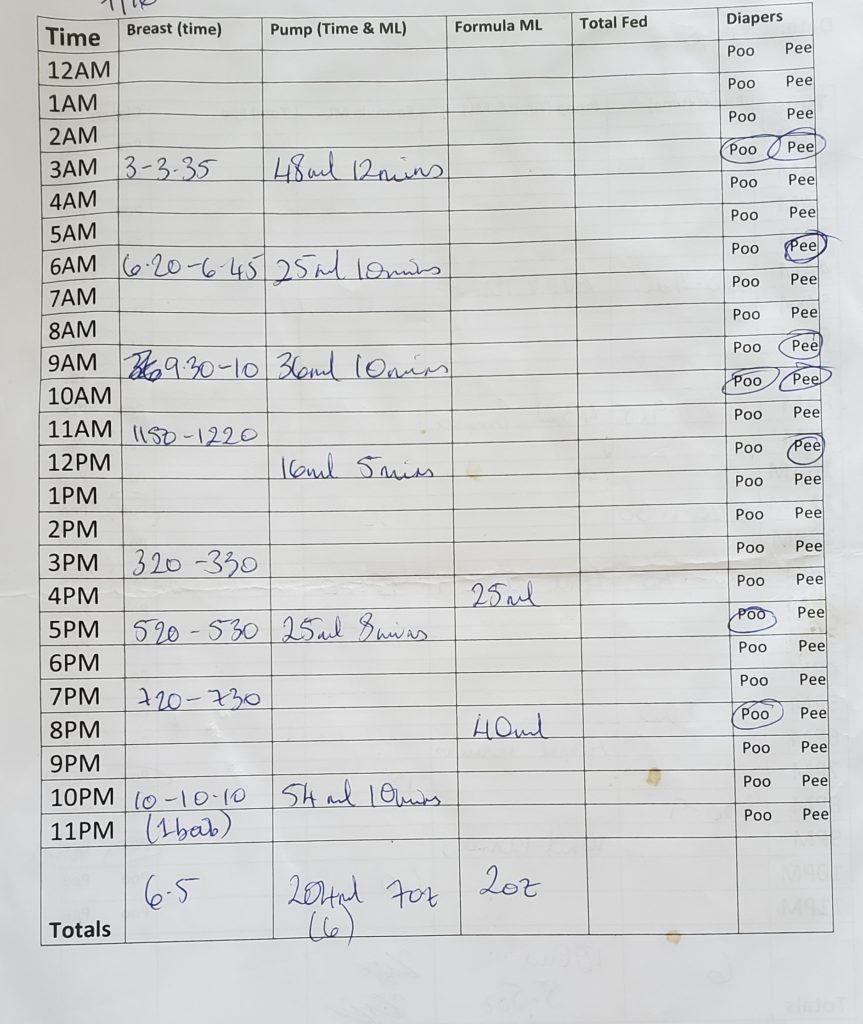 Time Breast (time) Pump (Time & ML) Formula ML Total Fed Diapers
12AM Poo Pee
1AM Poo Pee
2AM Poo Pee
3AM 3-3.35 48ml 12mins Poo Pee
4AM Poo Pee
5AM Poo Pee
6AM 6.20-6.45 25ml 10mins Poo Pee
7AM Poo Pee
8AM Poo Pee
9AM 9.30-10 36ml 10mins Poo Pee
10AM Poo Pee
11AM 1150-1220 Poo Pee
12PM 16ml 5mins Poo Pee
1PM Poo Pee
2PM Poo Pee
3PM 320-330 Poo Pee
4PM 25ml Poo Pee
5PM 520-530 25ml 8mins Poo Pee
6PM Poo Pee
7PM 720-730 Poo Pee
8PM 40ml Poo Pee
9PM Poo Pee
10PM 10-10.10 54ml 10mins Poo Pee
11PM (1 bab) Poo Pee
Totals 6.5 204ml 7oz 2oz
(6)